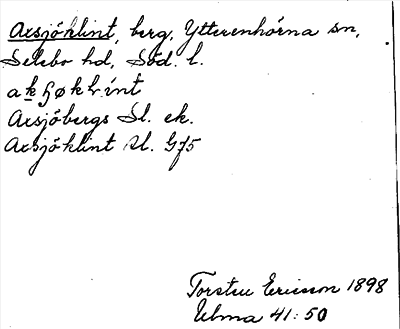 Axsjöklint, berg, Ytterenhörna sn,
Selebo hd, Söd. l.
Axsjöbergs Sl. ek.
Axsjöklint Sl. Gf5
Torsten Ericsson 1898
Ulma 41:50